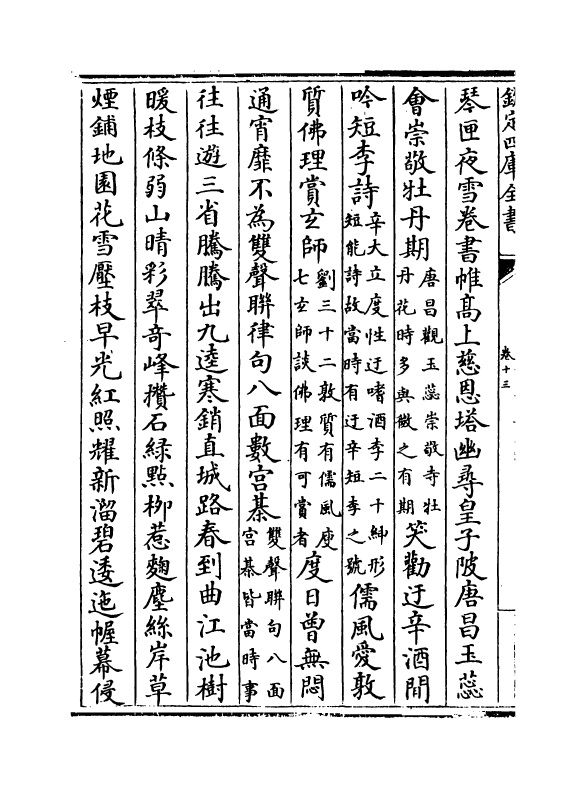 欽定四庫全書
卷十三
琴匣夜雪卷書帷高上慈恩塔幽尋皇子陂唐昌玉蕊
會崇敬牡丹期唐昌觀玉蕊崇敬寺牡丹花時多與微之有期笑勸迂辛酒閒
吟短李詩辛大立度性迂嗜酒李二十紳形短能詩故當時有迂辛短李之號儒風愛敦
質佛理賞玄師劉三十二敦質有儒風庾七玄師談佛理有可賞者度日曽無悶
通宵靡不為雙聲聯律句八面數宫棊雙聲聯句八面宫棊皆當時事
往往遊三省騰騰出九逵寒銷直城路春到曲江池樹
暖枝條弱山晴彩翠奇峰攢石緑點栁惹麴塵絲岸草
煙鋪地園花雪壓枝早光紅照耀新溜碧逶迤幄幕侵